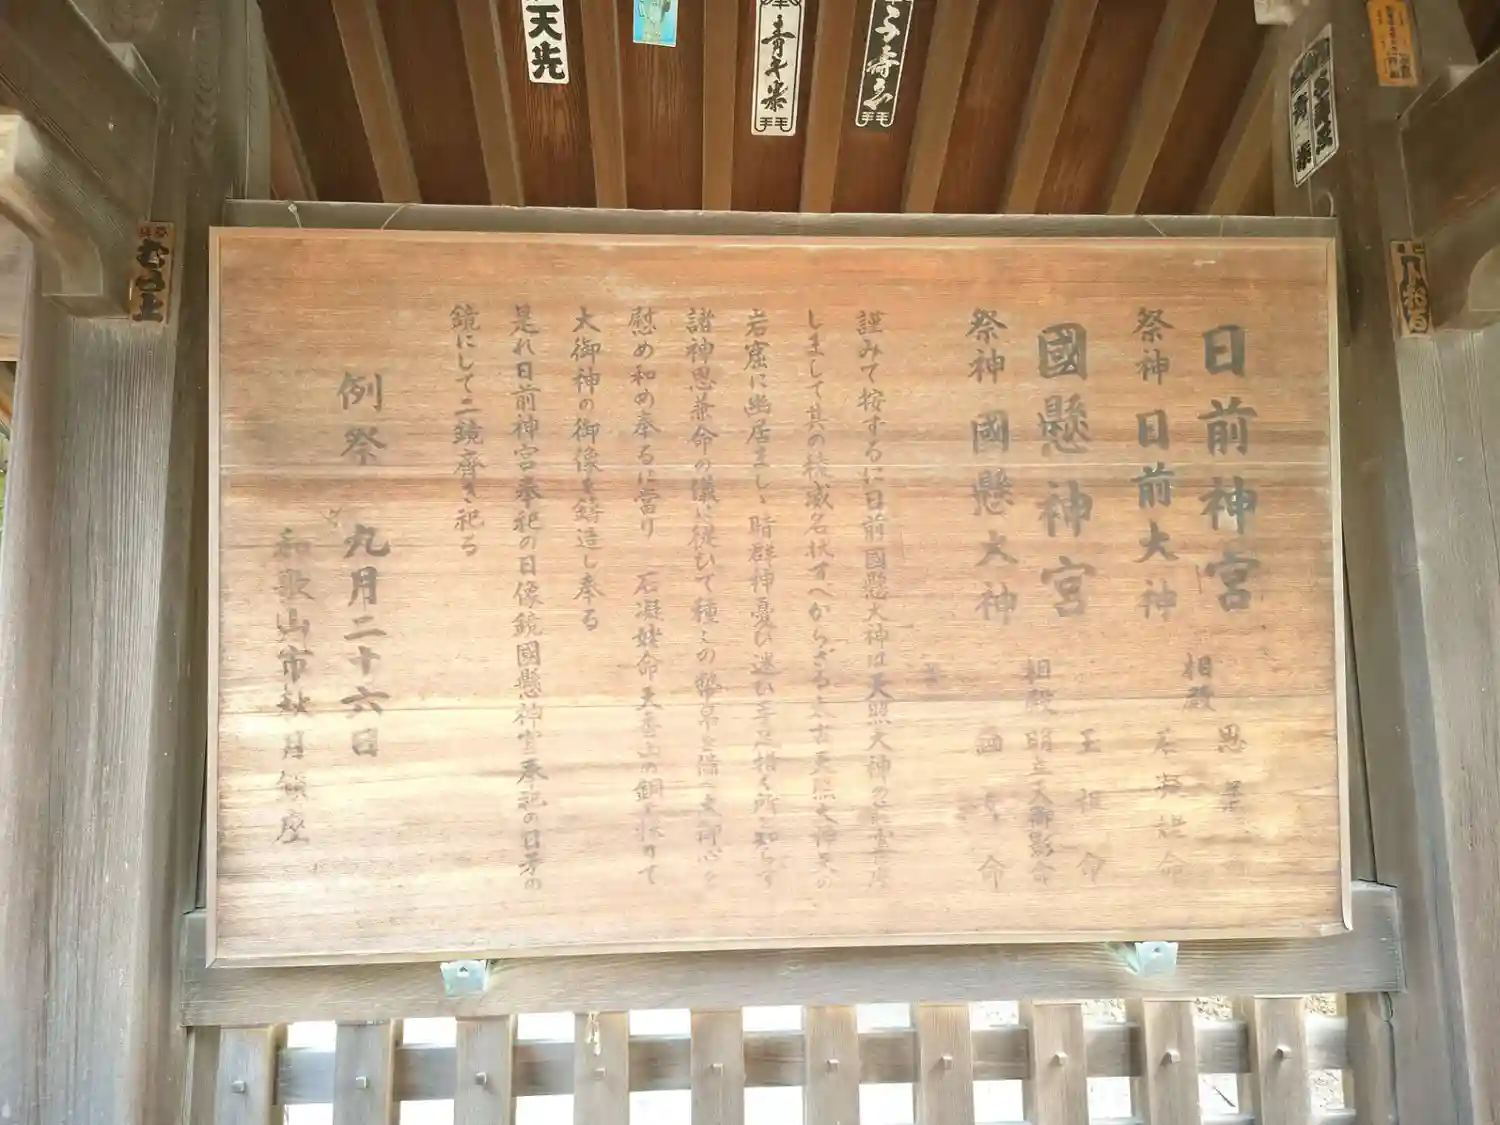 日前神宮
相殿
思兼命
石凝姥命
祭神 日前大神
國懸神宮
相殿
玉祖命
明立天御影命
鈿女命
祭神 國懸大神
謹みて按するに日前國懸大神は天照大神の前霊に座
しまして其の稜威名状すへからざる太古天照大神天の
岩窟に幽居ましゝ時群神憂ひ迷ひ手足措く所を知らず
諸神思兼命の議に従ひて種々の幣帛を備へ大御心を
慰め和め奉るに當り 石凝姥命天香山の銅を採りて
大御神の御像を鋳造し奉る
是れ日前神宮奉祀の日像鏡國懸神宮奉祀の日矛の
鏡にして二鏡齊き祀る
例祭 九月二十六日
和歌山市秋月鎮座
天先
拝
むら上